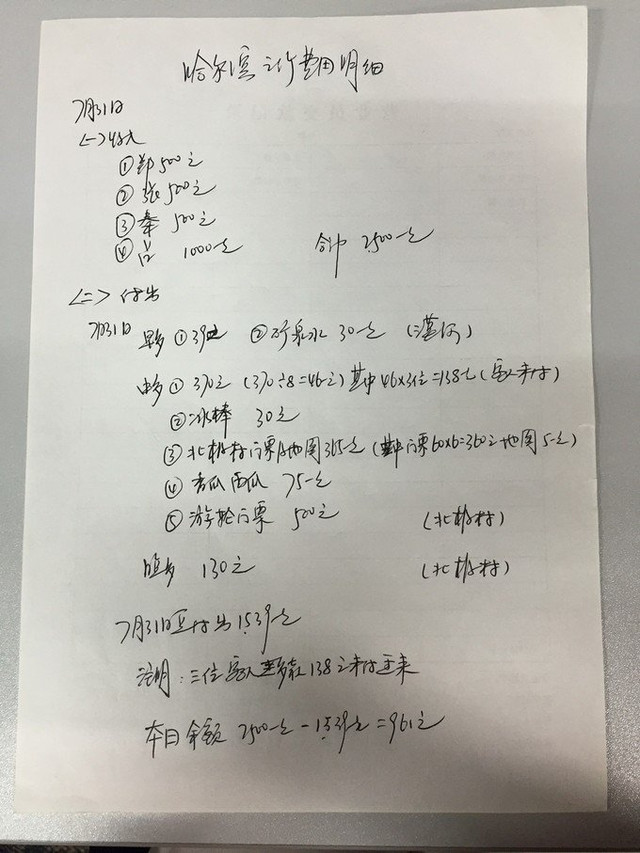 哈尔滨之行费用明细
7月31日
<一>收入
①郑500元
②张500元
③秦 500元
④吕 1000元 合计 2500元
<二>付出
7月31日 早餐 ①39元 ②矿泉水 30元 (漠河)
中餐 ① 370元 (370÷8=46元) 其中46×3位=138元(客人未付)
②冰棒 30元
③北极村门票及地图365元 (其中门票60×6=360元 地图5元)
④香瓜西瓜 75元
⑤游轮门票 500元 (北极村)
晚餐 130元 (北极村)
7月31日共付出1539元
注明:三位客人 138元未付
本日余额 2500元-1539元=961元